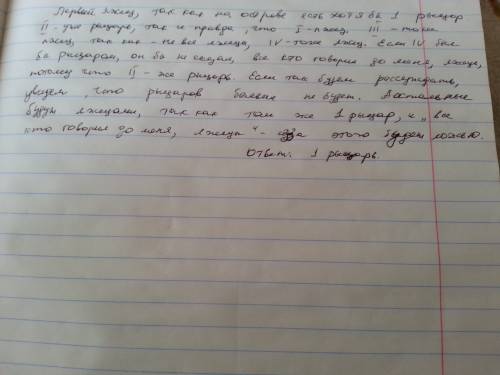 Первый лжец, так как на острове есть хотя бы 1 рыцарь
II - уже рыцарь, так и правда, что I - лжец. III - тоже
лжец, так как - не все лжецы, IV - тоже лжец. Если IV был
бы рыцарем, он бы не сказал, все кто говорил до меня, лжецы,
потому что II - же рыцарь. Если так будем рассуждать,
увидем, что рыцарей больше не будет. Достальные
будут лжецами, так как там же 1 рыцарь, и „все
кто говорил до меня, лжецы“ - этого будет ложью.
Ответ: 1 рыцарь.